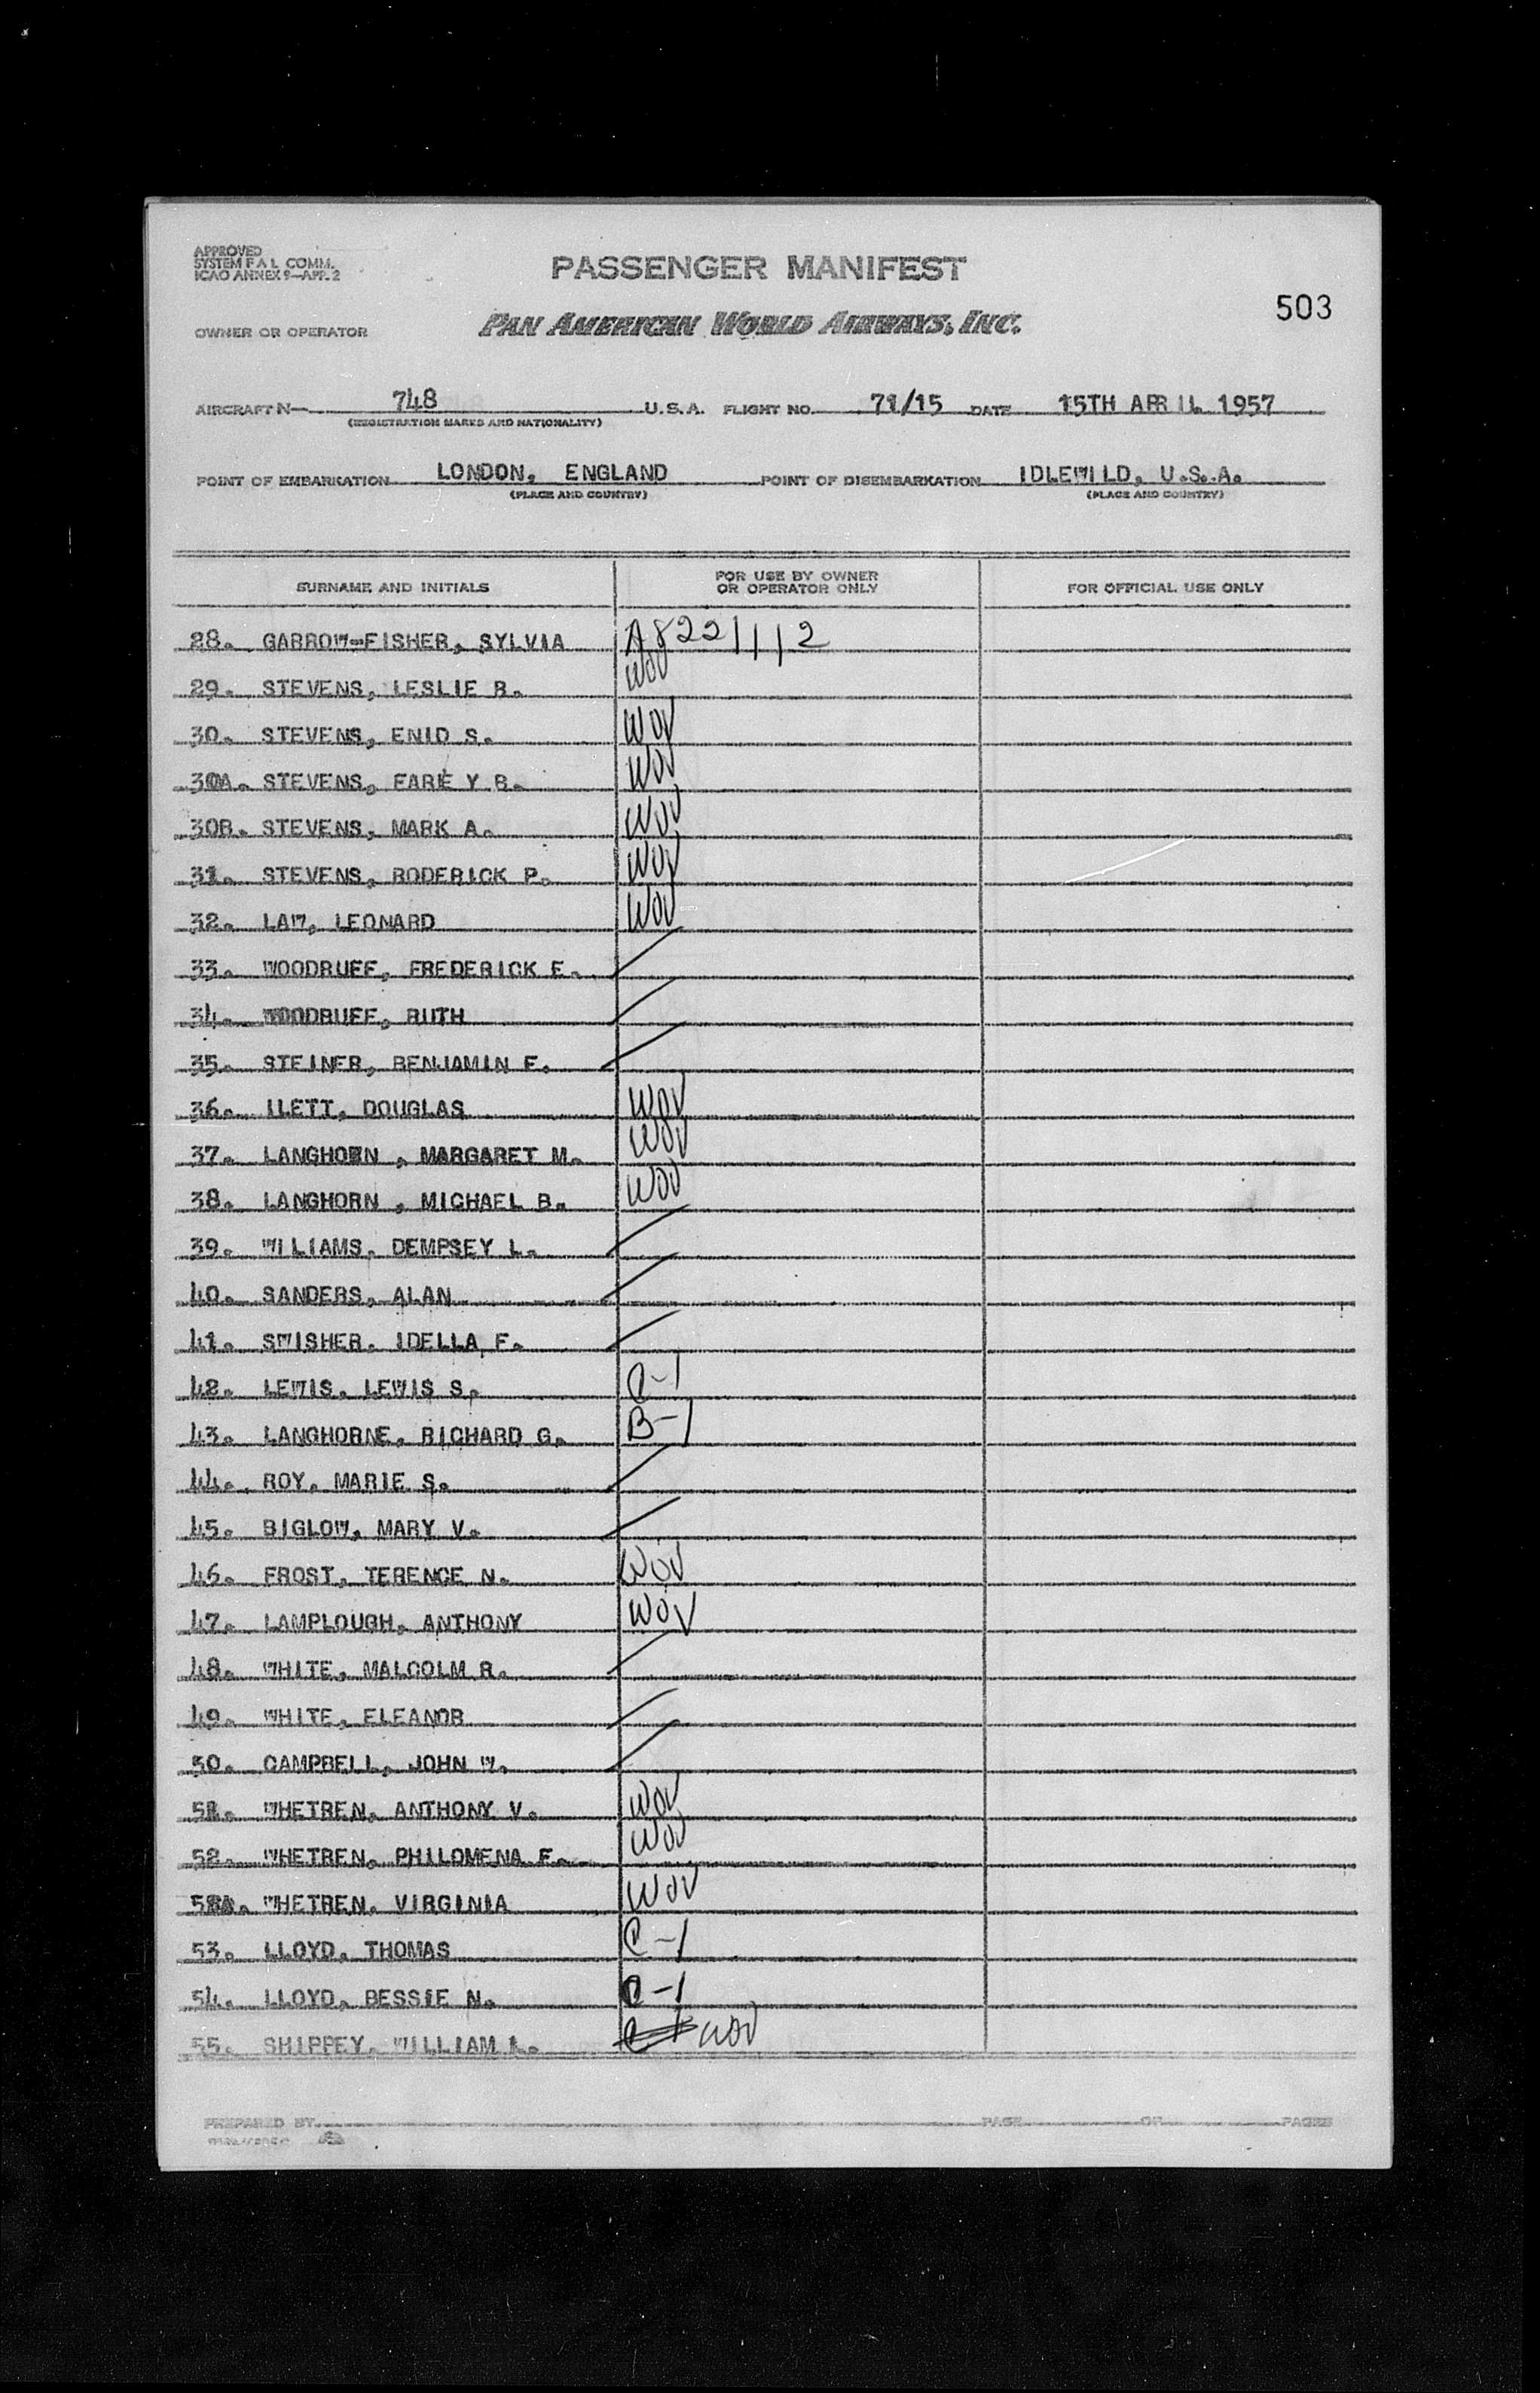 APPROVED
SYSTEM F A L COMM.
ICAO ANNEX 9—APP. 2
PASSENGER MANIFEST
503
OWNER OR OPERATOR
PAN AMERICAN WORLD AIRWAYS, INC.
AIRCRAFT N— 748 U.S.A. FLIGHT NO. 71/15 DATE 15TH APRIL 1957
(REGISTRATION MARKS AND NATIONALITY)
POINT OF EMBARKATION LONDON, ENGLAND POINT OF DISEMBARKATION IDLEWILD, U.S.A.
(PLACE AND COUNTRY) (PLACE AND COUNTRY)
SURNAME AND INITIALS FOR USE BY OWNER OR OPERATOR ONLY FOR OFFICIAL USE ONLY
28. GARROW-FISHER, SYLVIA A8221112
29. STEVENS, LESLIE B. WOV
30. STEVENS, ENID S. WOV
30A. STEVENS, EARE Y B. WOV
30B. STEVENS, MARK A. WOV
31. STEVENS, RODERICK P. WOV
32. LAW, LEONARD WOV
33. WOODRUFF, FREDERICK E.
34. WOODRUFF, RUTH
35. STEINER, BENJAMIN F.
36. ILETT, DOUGLAS WOV
37. LANGHORN , MARGARET M. WOV
38. LANGHORN , MICHAEL B. WOV
39. WILIAMS, DEMPSEY L.
40. SANDERS, ALAN
41. SWISHER, IDELLA F.
42. LEWIS, LEWIS S. C-1
43. LANGHORNE, RICHARD G. B-1
44. ROY, MARIE S.
45. BIGLOW, MARY V.
46. FROST, TERENCE N. WOV
47. LAMPLOUGH, ANTHONY WOV
48. WHITE, MALCOLM R.
49. WHITE, ELEANOR
50. CAMPBELL, JOHN W.
51. WHETREN, ANTHONY V. WOV
52. WHETREN, PHILOMENA F. WOV
52A. WHETREN, VIRGINIA WOV
53. LLOYD, THOMAS C-1
54. LLOYD, BESSIE N. C-1
55. SHIPPEY, WILLIAM L. WOV
PREPARED BY PAGE OF PAGES